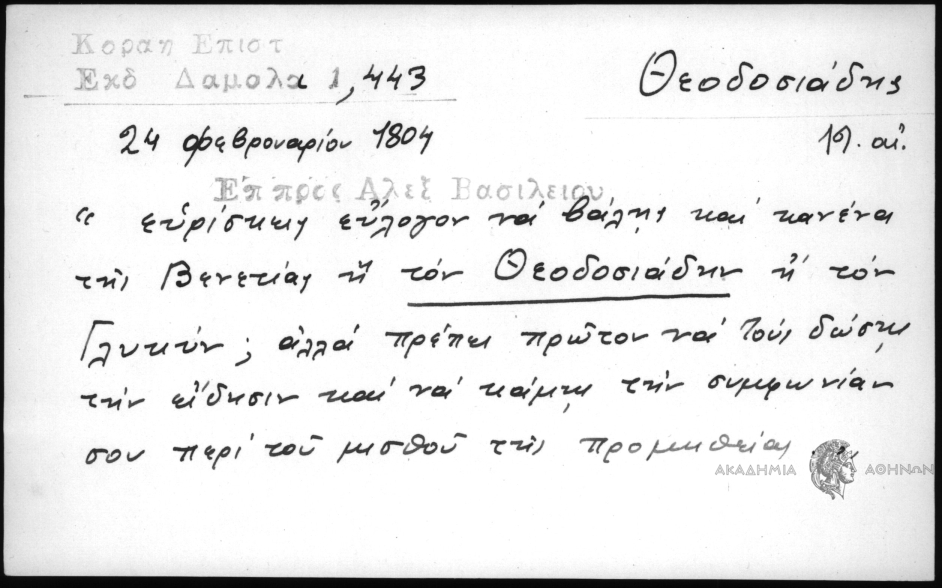 Κοραη Επιστ
Εκδ Δαμαλα 1,443
Θεοδοσιάδης
24 Φεβρουαρίου 1804
19. αἰ.
Επ προς Αλεξ Βασιλειου
" εὑρίσκεις εὔλογον νά βάλῃς καί κανένα
τῆς Βενετίας ἤ τόν Θεοδοσιάδην ἤ τόν
Γλυκύν; ἀλλά πρέπει πρῶτον νά τούς δώσῃς
τήν εἴδησιν καί νά κάμῃς τήν συμφωνίαν
σου περί τοῦ μισθοῦ τῆς προμηθείας
ΑΚΑΔΗΜΙΑ ΑΘΗΝΩΝ